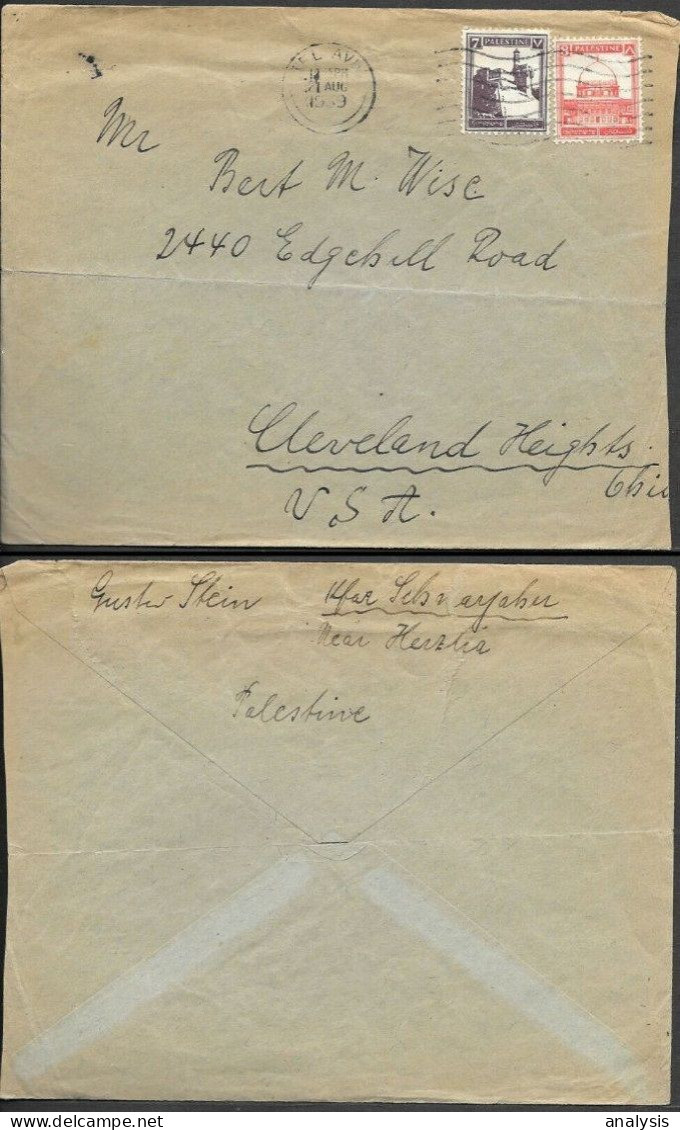 TEL AVIV
AUG
1939
7 PALESTINE ٧
8 PALESTINE ٨
Mr
Bert M. Wise
2440 Edgehill Road
Cleveland Heights.
Ohio
U.S.A.
Gustav Stein Kfar Schmarjahu
Near Herzlia
Palestine
analysis